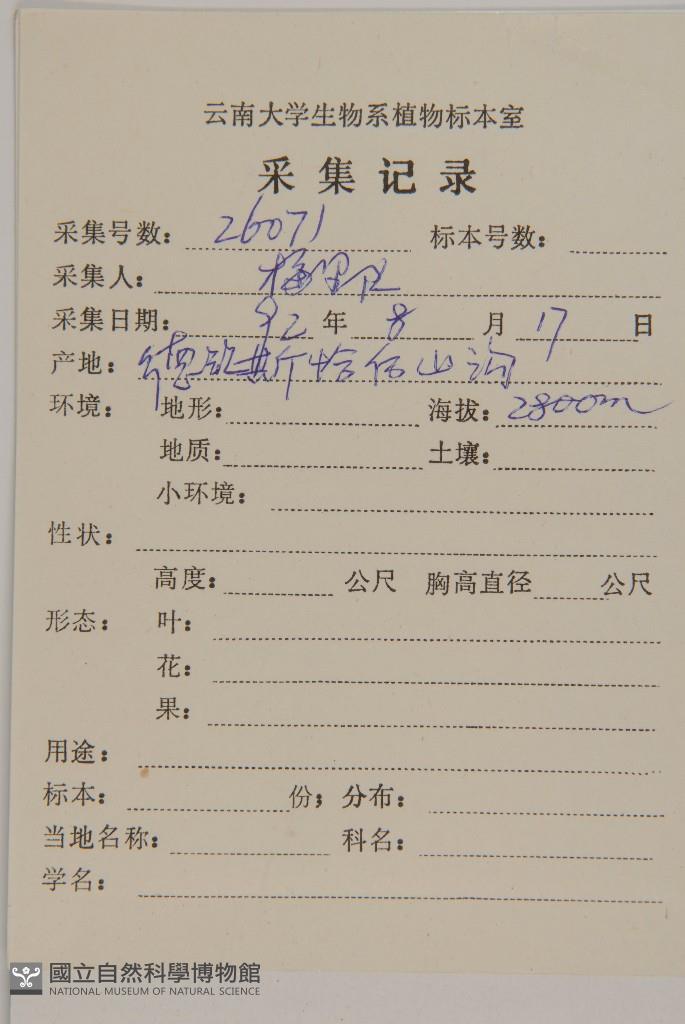 云南大学生物系植物标本室
采集记录
采集号数： 26071 标本号数：
采集人： 梅里
采集日期： 92 年 8 月 17 日
产地： 德钦斯恰 山沟
环境： 地形： 海拔： 2800m
地质： 土壤：
小环境：
性状：
高度： 公尺 胸高直径 公尺
形态： 叶：
花：
果：
用途：
标本： 份； 分布：
当地名称： 科名：
学名：
國立自然科學博物館
NATIONAL MUSEUM OF NATURAL SCIENCE